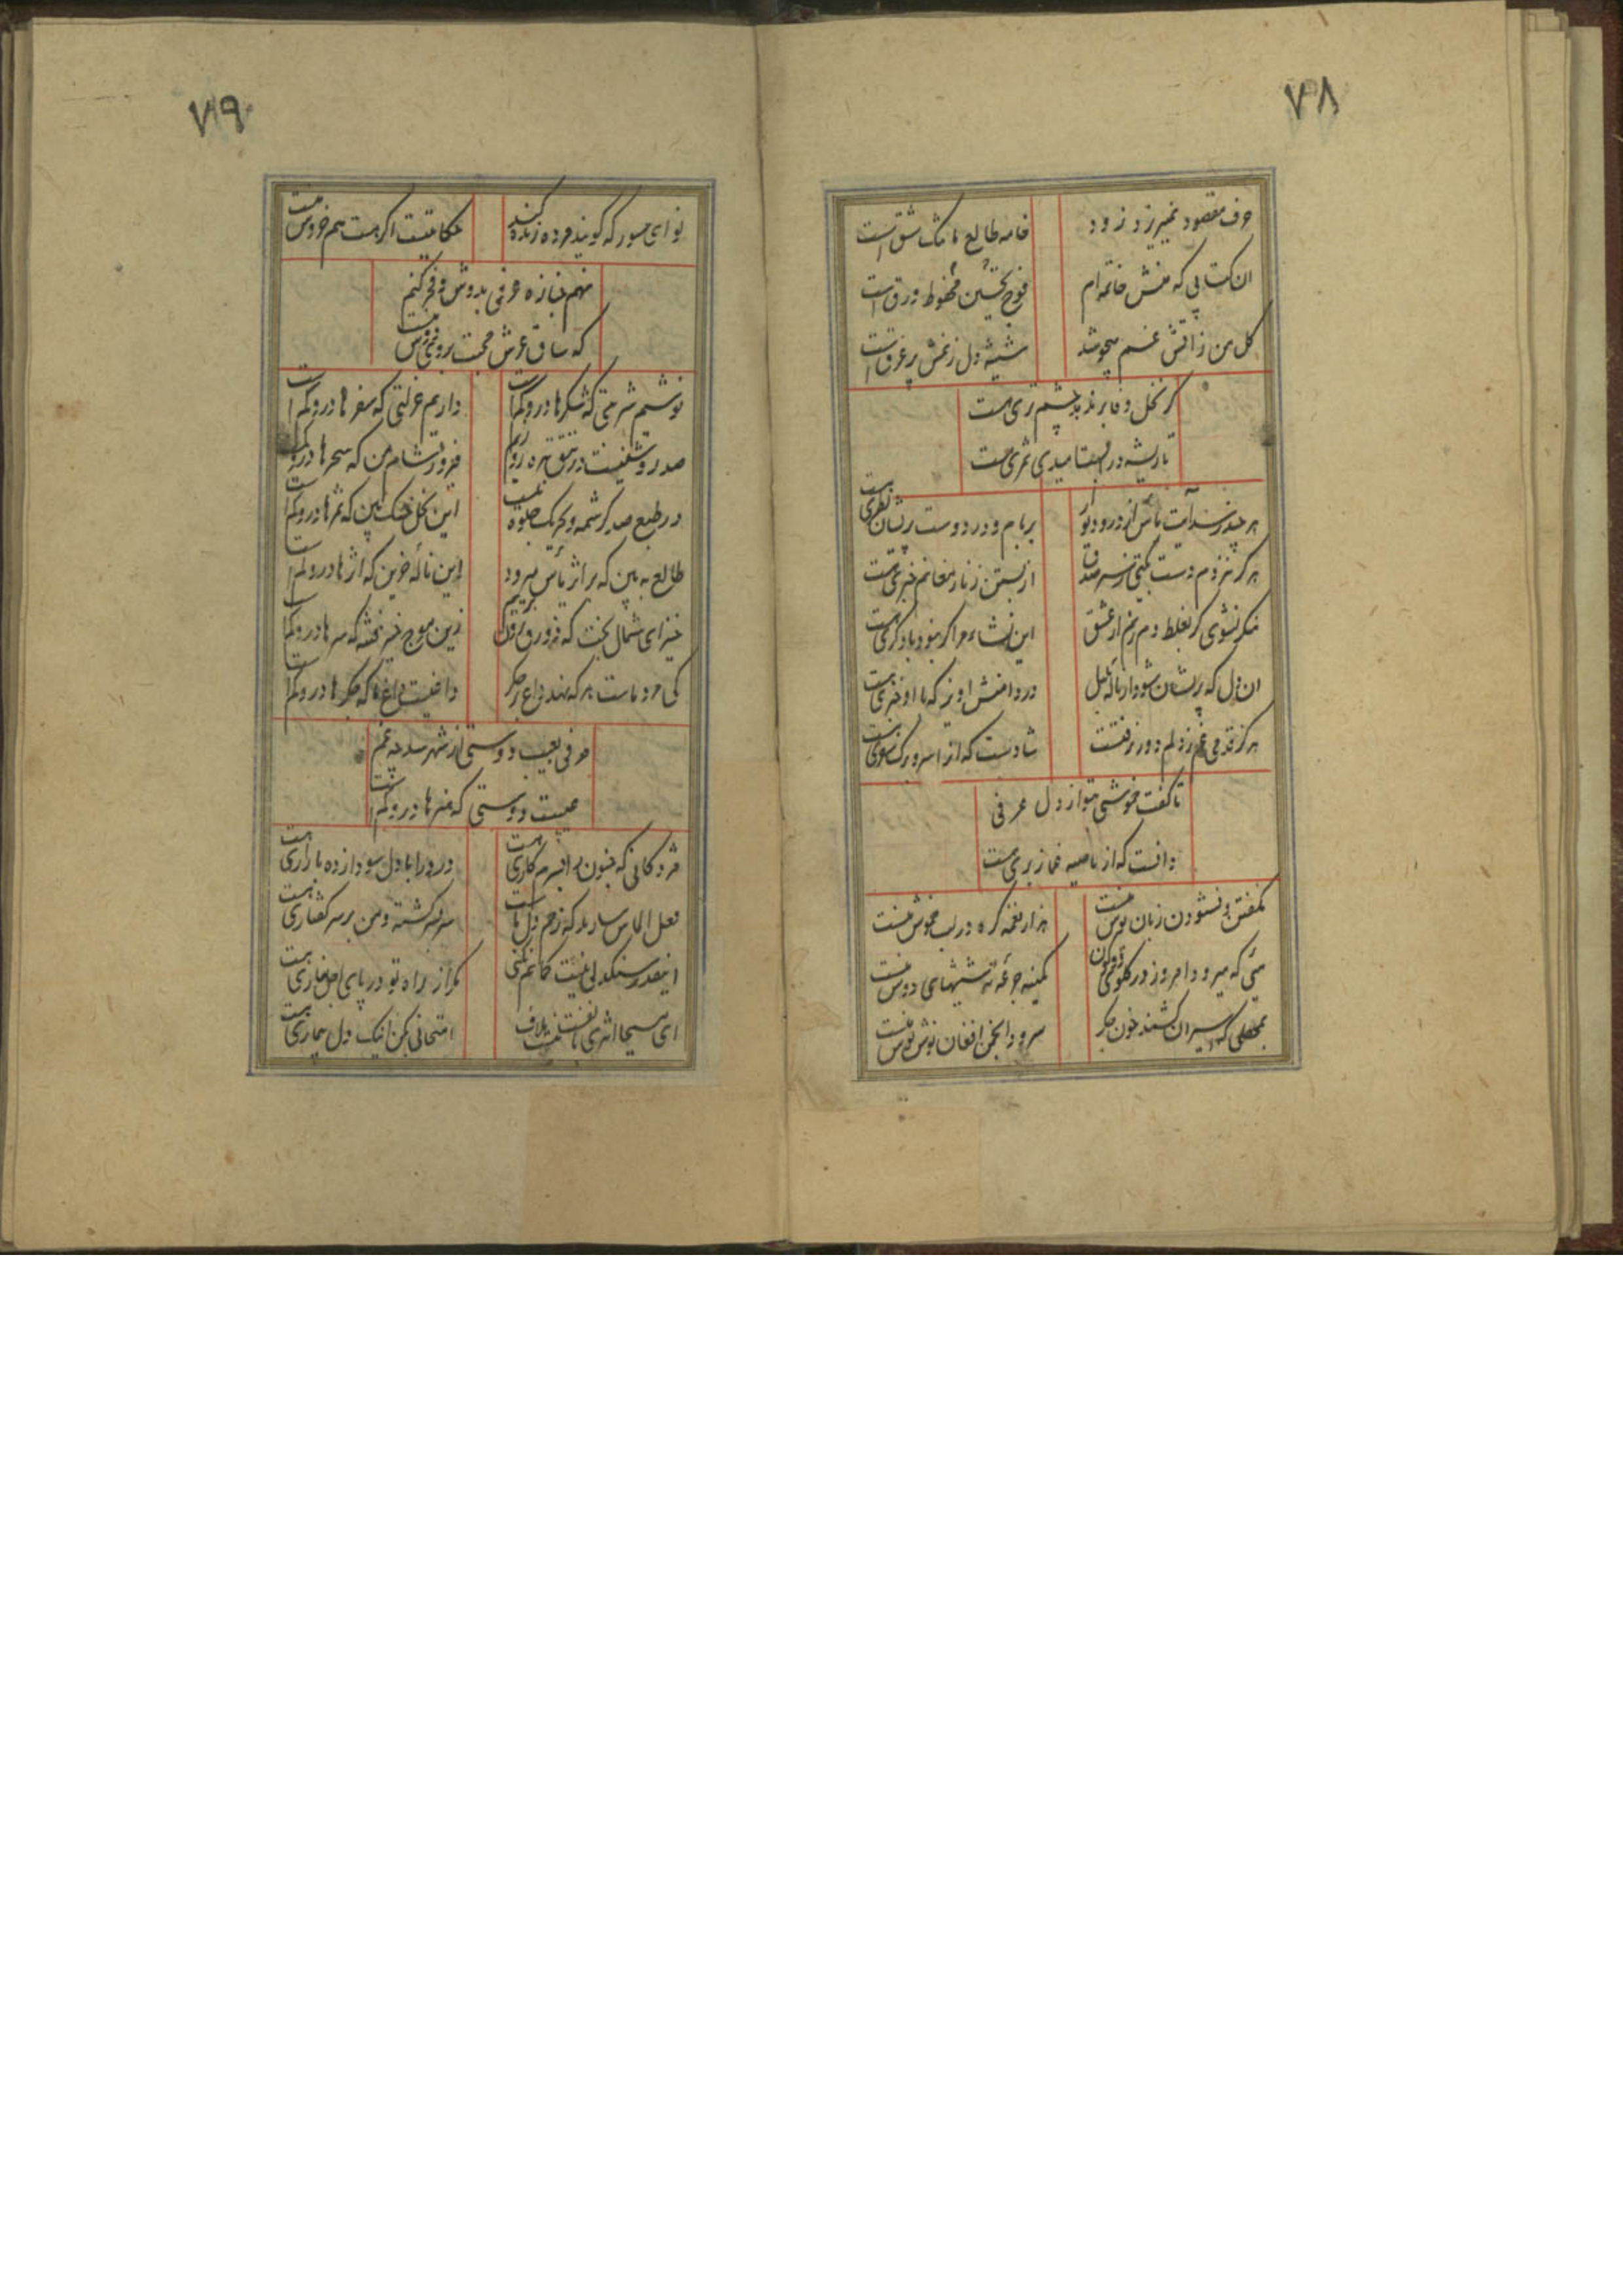 ۷۸
حرف مقصود نمیریزد زود
خامه طالع ما تک شق است
ان کتابی که منش خاتمه ام
ورق است
کل من ز اتش غم میجوشد
شیشه دل ز غمش پر عرق است
کر نخل وفا بر ندهد چشم تری هست
تا ریشه در ابست امیدی ثمری هست
هر چند رسد آیت یاس از در و دیوار
بر بام و در دوست پریشان نظری هست
هرکز نزدم دست بکتی ز سر صدق
از بستن زنار مغانم خبری هست
منکر نشوی کر بغلط دم زنم از عشق
این نشاء مرا کر نبود با دکری هست
ان دل که پریشان شود از ناله بلبل
در دامنش اویز که با او خبری هست
هرکز قدمی غم ز دلم دور نرفتست
شادست که او را سر و برک سفری هست
تا کفت خموشی بتو راز دل عرفی
دانست که از ناصیه غماز بری هست
نکفتن و نشنودن زبان کوش منست
هزار نغمه کره در لب خموش منست
میی که میرود امروز در کلوی دو کون
کمینه جرعه ته شیشهای دوش منست
بمحفلی که اسیران کشند خون جکر
سرود انجمن افغان نوش نوش منست
۷۹
نوای صور که کویند مرده زنده کند
حکایتیست اکر هست هم خروش منست
نهم جنازه عرفی بدوش و فخر کنم
که ساق عرش محبت بروی دوش منست
نوشیم شربتی که شکرها درو کمست
داریم عزلتی که سفرها درو کمست
صد روشنیست در تتق تیره روزیم
فیروز شام من که سحرها درو کمست
در طبع صد کرشمه و تحریک جلوه نیست
این نخل خشک بین که ثمرها درو کمست
طالع به بین که بر اثر یأس میرود
این ناله حزین که اثرها درو کمست
خیز ای شمال بخت که زورق برون بریم
زین موج خیز فتنه که سرها درو کمست
کی مرد ماست هر که نهد داغ بر جکر
داغیست داغ ما که جکرها درو کمست
عرفی بعیب دوستی از شهره شد چه غم
عیبست دوستی که هنرها درو کمست
مژدکانی که جنون را بسرم کاری هست
درد را با دل سودا زده بازاری هست
لعل الماس بسازید که زخم دل ما
سر بسر کشته و من بر سر کفتاری هست
اینقدر سنکدلی نیست کمانم
مکر از راه تو در پای اجل خاری هست
ای مسیحا اثری با نفست نیست ملاف
امتحانی بکن اینک دل بیماری هست